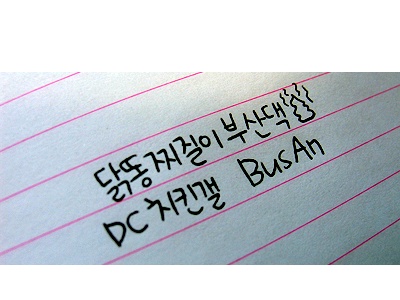 닭똥찌질이부산댁
DC치킨갤 BusAn